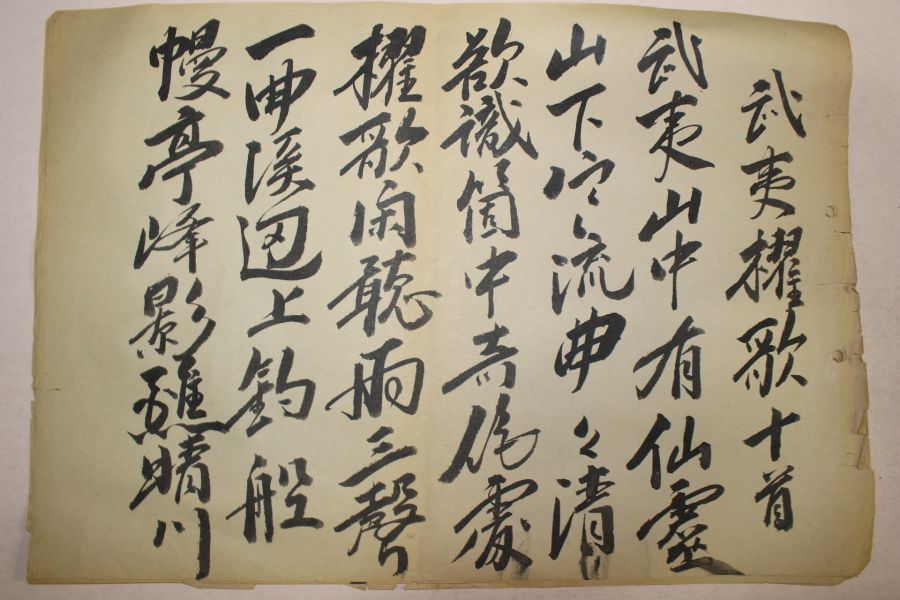 武夷櫂歌十首
武夷山中有仙靈
山下寒流曲々清
欲識箇中奇絶處
櫂歌閑聽兩三聲
一曲溪邊上釣船
幔亭峰影蘸晴川